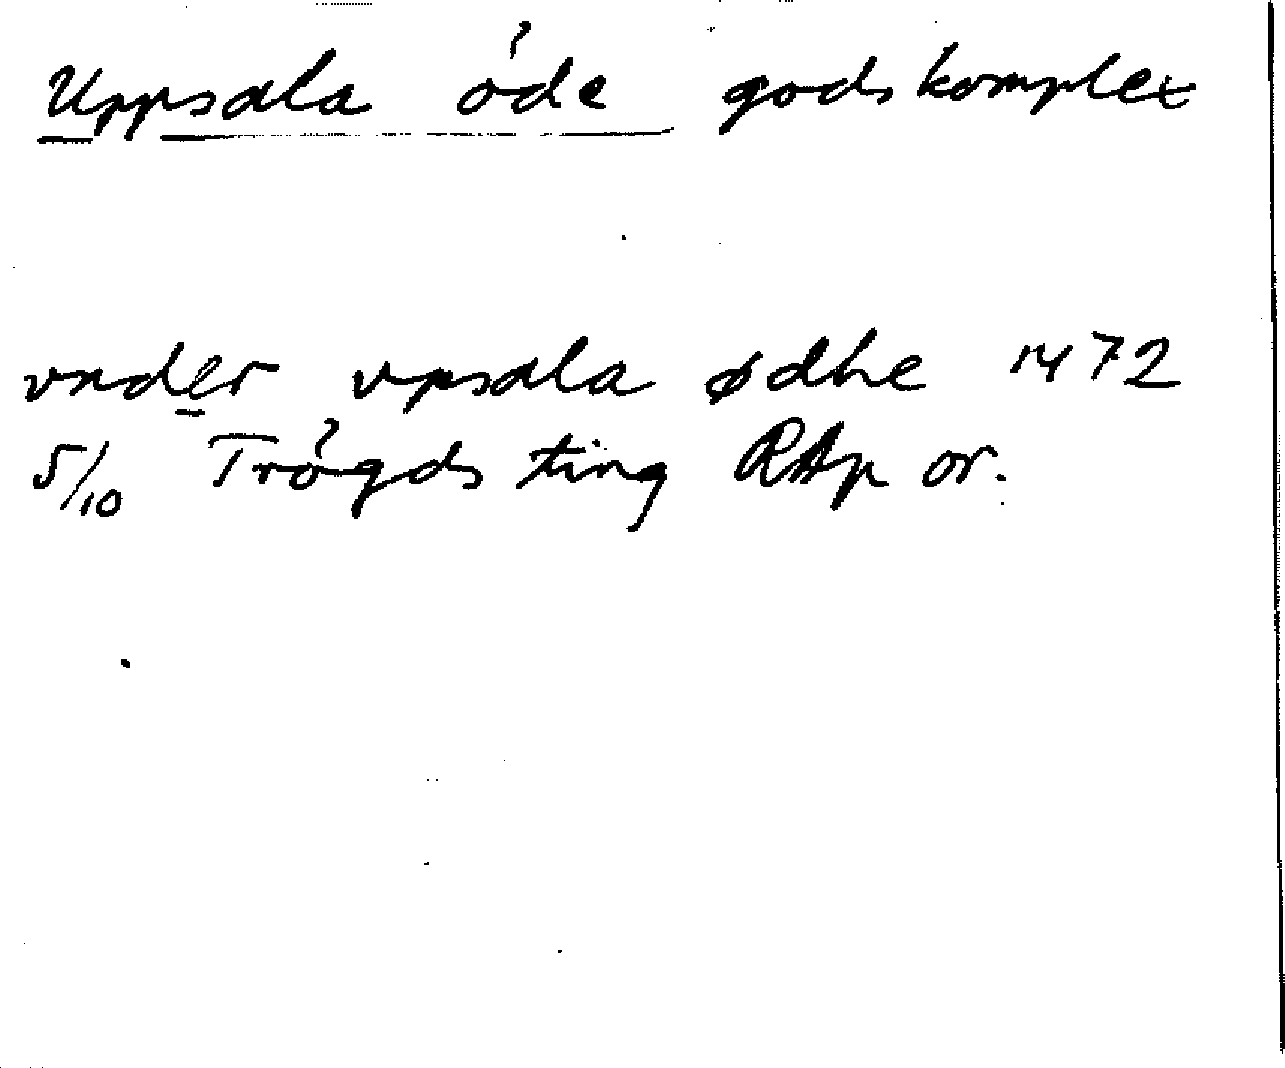 Uppsala öde godskomplex
vnder vpsala ødhe 1472
5/10 Trögds ting RAp or.